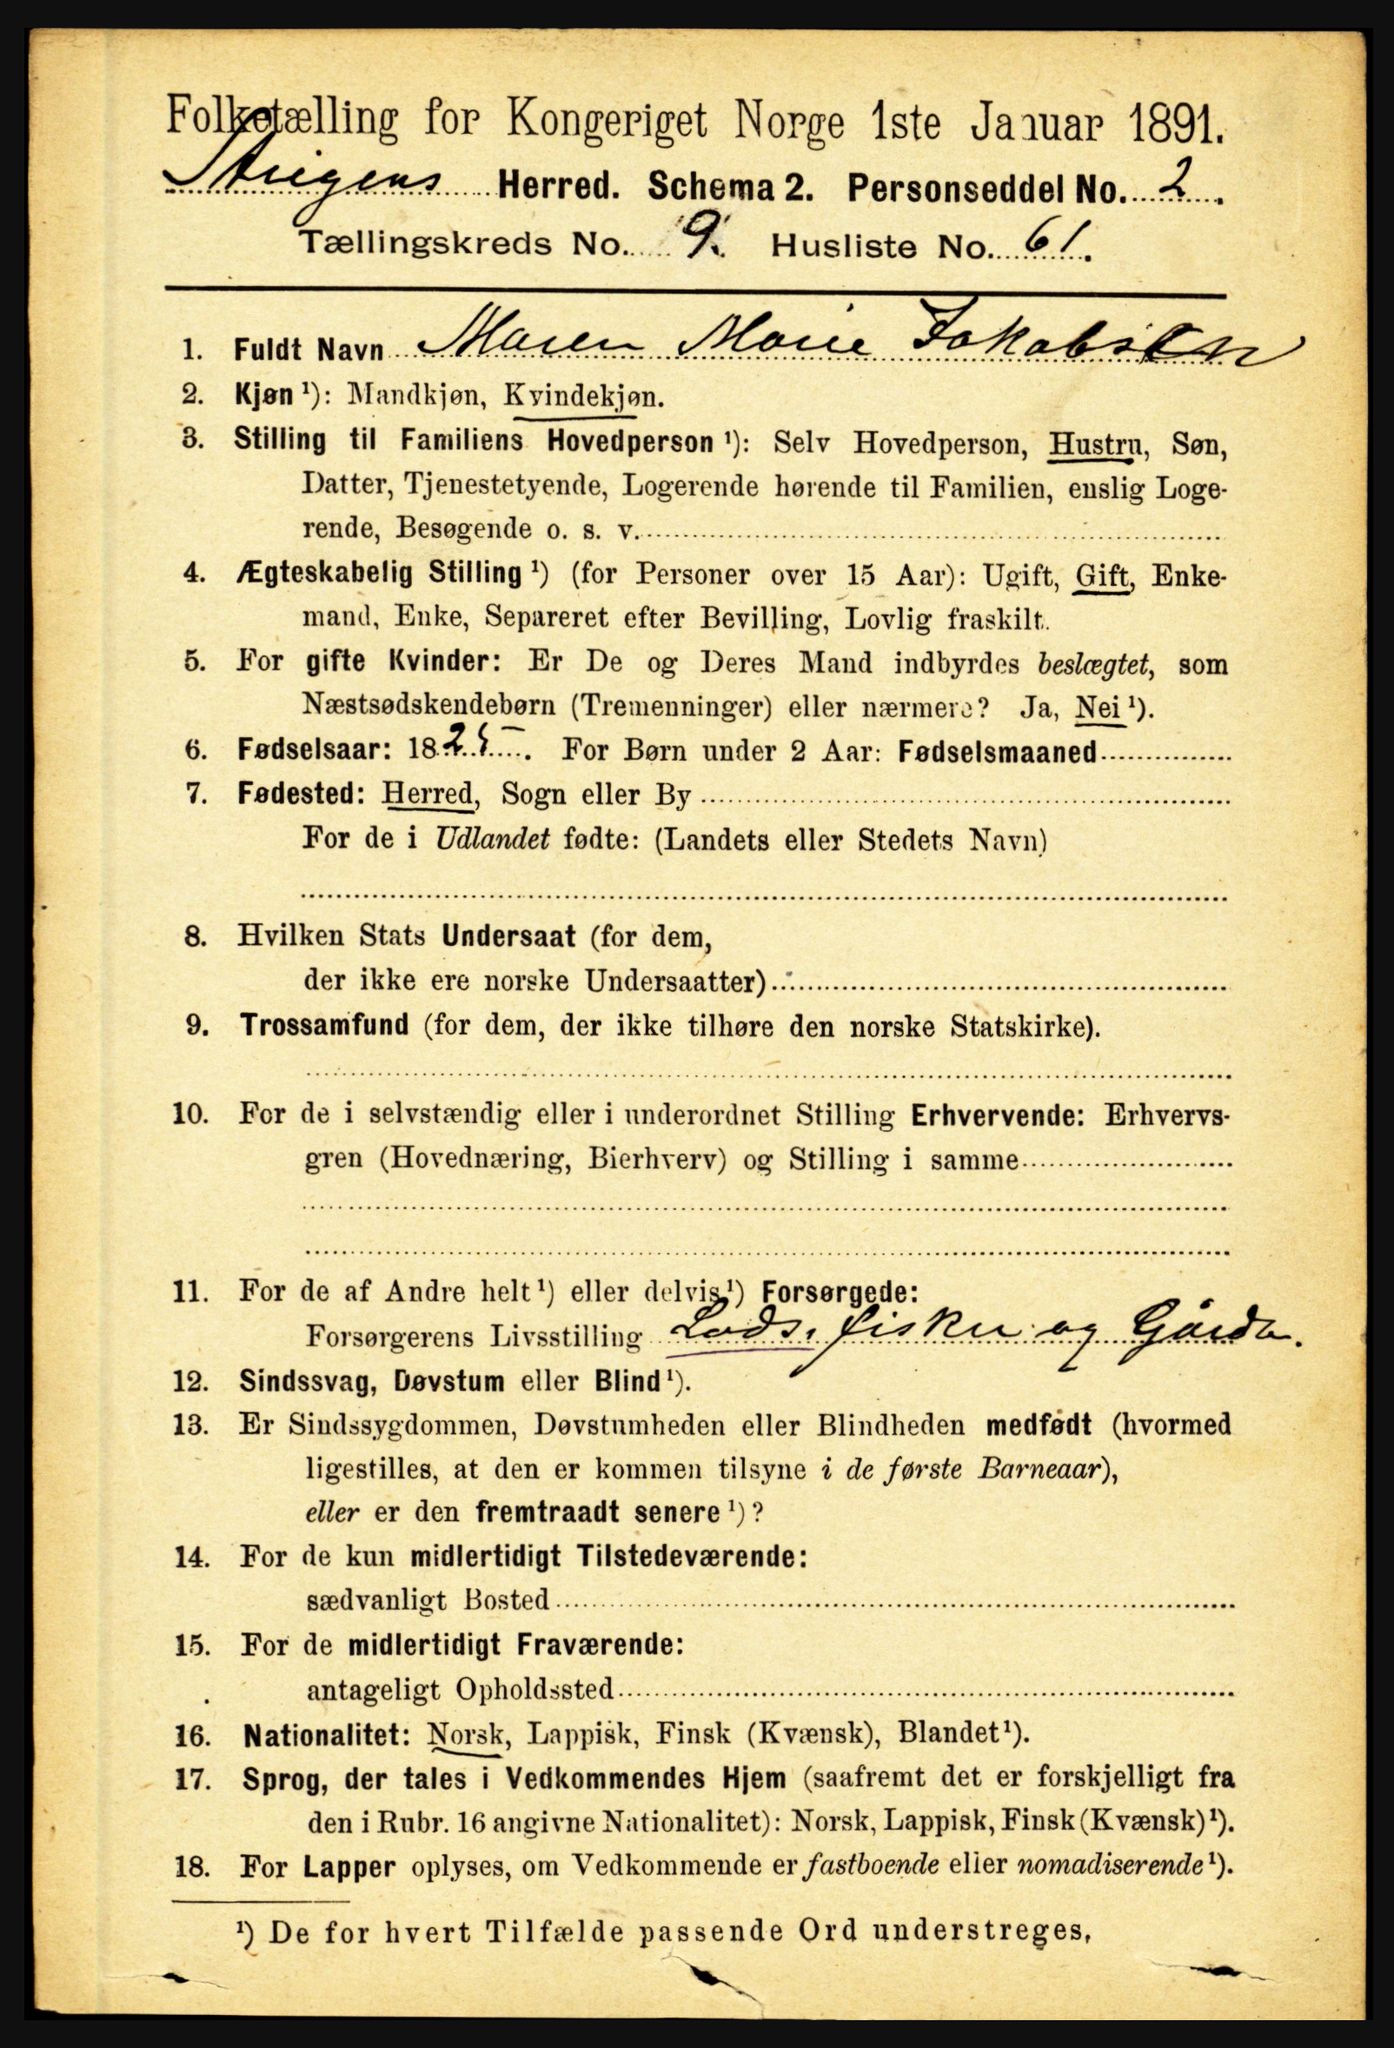 Folketælling for Kongeriget Norge 1ste Januar 1891.
Steigens Herred. Schema 2. Personseddel No. 2.
Tællingskreds No. 9. Husliste No. 61.
1. Fuldt Navn Maren Marie Jakobsen
2. Kjøn ¹): Mandkjøn, Kvindekjøn.
3. Stilling til Familiens Hovedperson ¹): Selv Hovedperson, Hustru, Søn,
Datter, Tjenestetyende, Logerende hørende til Familien, enslig Loge-
rende, Besøgende o. s. v.
4. Ægteskabelig Stilling ¹) (for Personer over 15 Aar): Ugift, Gift, Enke-
mand, Enke, Separeret efter Bevilling, Lovlig fraskilt.
5. For gifte Kvinder: Er De og Deres Mand indbyrdes beslægtet, som
Næstsødskendebørn (Tremenninger) eller nærmere? Ja, Nei ¹).
6. Fødselsaar: 1825. For Børn under 2 Aar: Fødselsmaaned
7. Fødested: Herred, Sogn eller By
For de i Udlandet fødte: (Landets eller Stedets Navn)
8. Hvilken Stats Undersaat (for dem,
der ikke ere norske Undersaatter)
9. Trossamfund (for dem, der ikke tilhøre den norske Statskirke).
10. For de i selvstændig eller i underordnet Stilling Erhvervende: Erhvervs-
gren (Hovednæring, Bierhverv) og Stilling i samme
11. For de af Andre helt ¹) eller delvis ¹) Forsørgede:
Forsørgerens Livsstilling Lods, fisker og Gårdb.
12. Sindssvag, Døvstum eller Blind ¹).
13. Er Sindssygdommen, Døvstumheden eller Blindheden medfødt (hvormed
ligestilles, at den er kommen tilsyne i de første Barneaar),
eller er den fremtraadt senere ¹)?
14. For de kun midlertidigt Tilstedeværende:
sædvanligt Bosted
15. For de midlertidigt Fraværende:
antageligt Opholdssted
16. Nationalitet: Norsk, Lappisk, Finsk (Kvænsk), Blandet ¹).
17. Sprog, der tales i Vedkommendes Hjem (saafremt det er forskjelligt fra
den i Rubr. 16 angivne Nationalitet): Norsk, Lappisk, Finsk (Kvænsk) ¹).
18. For Lapper oplyses, om Vedkommende er fastboende eller nomadiserende ¹).
¹) De for hvert Tilfælde passende Ord understreges,